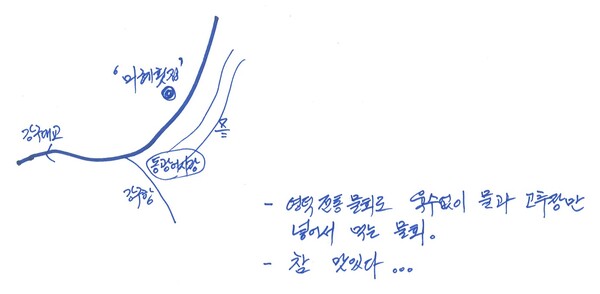 '미혜횟집'
강구대교
동광어시장
강구항
- 영덕 전통 물회로 육수없이 물과 고추장만
넣어서 먹는 물회.
- 참 맛있다...